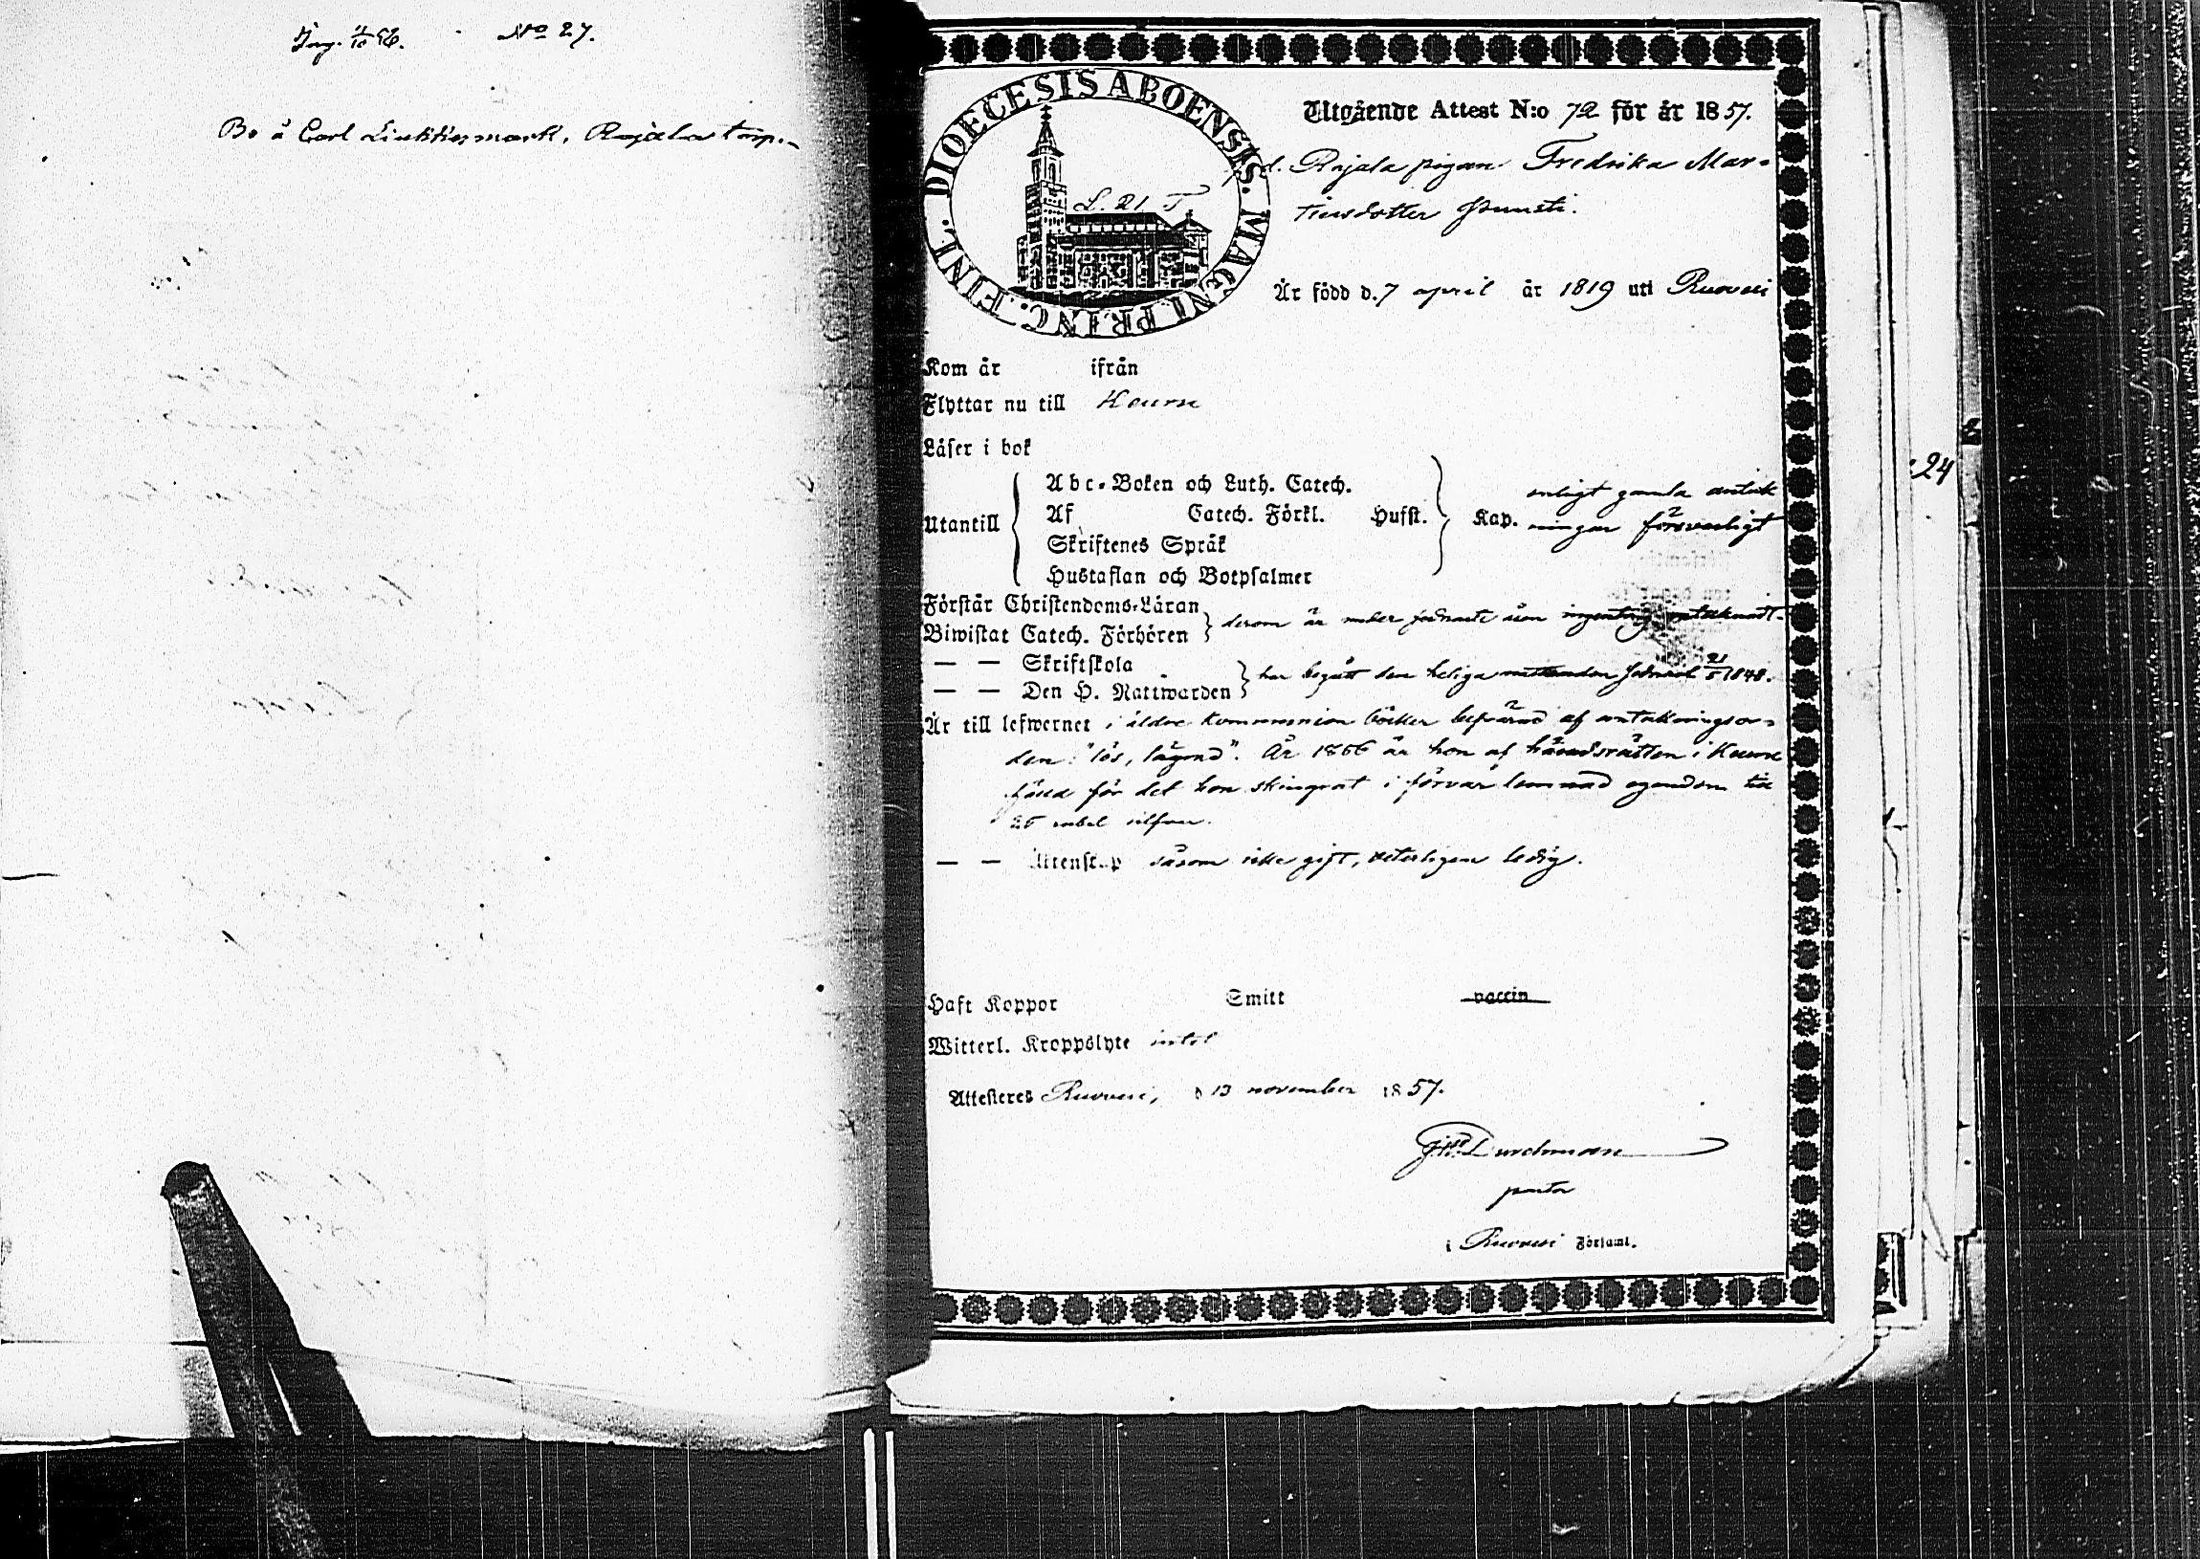 No 27.
Bo å Carl Rajala torp.
DIOECESIS ABOENSIS. MAGNI PRINC. FINL.
L. 21 T
Utgående Attest N:o 72 för år 1857.
Rajala pigan Fredrika Mar-
tinsdotter
Är född d. 7 april år 1819 uti Ruovesi
Kom år ifrån
Flyttar nu till Keuru
Läser i bok
Utantill
Abc-Boken och Luth. Catech.
Af Catech. Förkl. Husst. Kap.
Skriftenes Språk
Hustaflan och Botpsalmer
enligt gamla anteck
ningar försvarligt
Förstår Christendoms-Läran
Biwistat Catech. Förhören
derom är ingenting antecknadt.
— — Skriftskola
— — Den H. Nattwarden
har begått den heliga nattvarden 1848.
Är till lefwernet i äldre kommunion böcker af anteckningsor-
den: "lös, lägrad". År 1856 är hon af häradsrätten i Keuru
fälld för det hon skingrat i förvar lemnad egendom till
25 rubel silfver.
— — Ättenskap såsom icke gift, veterligen ledig.
Haft Koppor Smitt vaccin
Witterl. Kroppslyte intet
Attesteres Ruovesi, d 13 november 1857.
Durchman
pastor
i Ruovesi Församl.
24